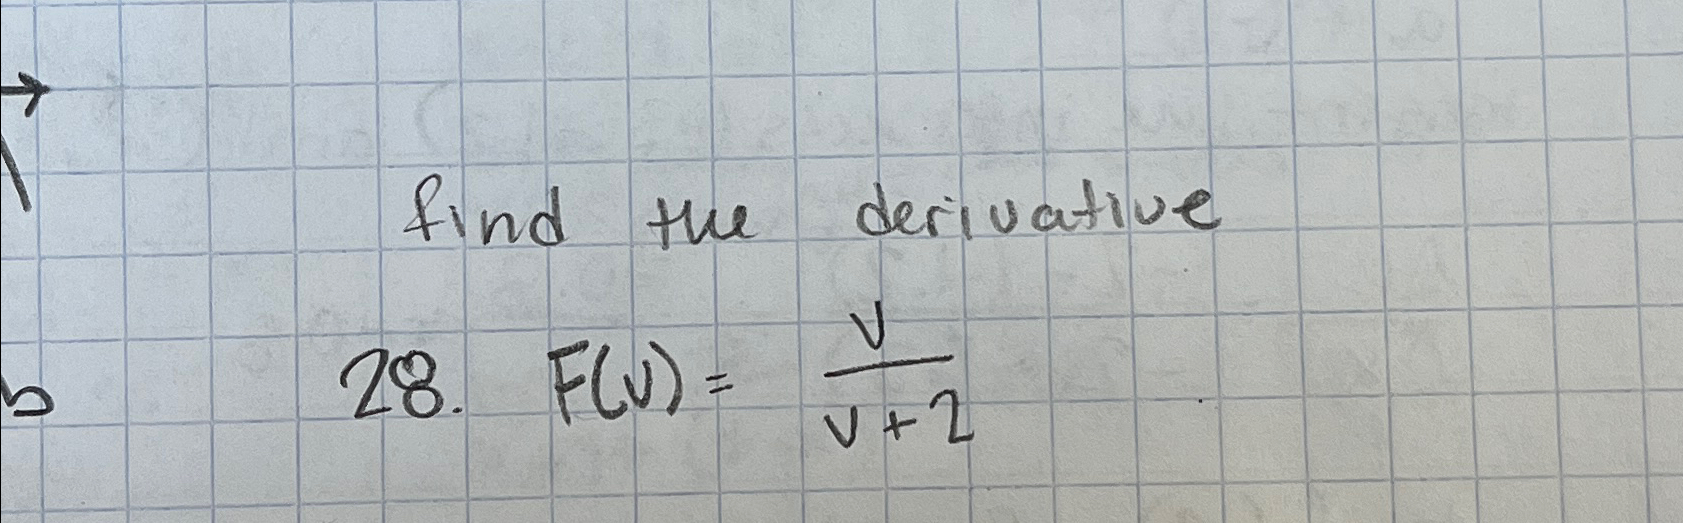 find the derivative
28. F(v) = v/(v+2)